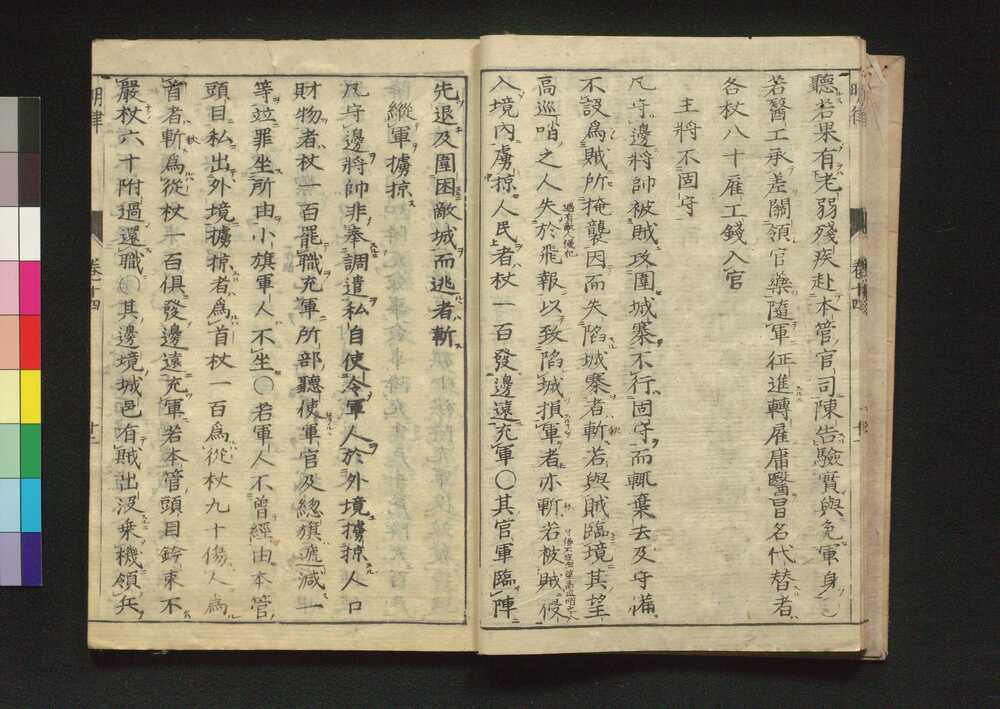 聽若果有老弱殘疾赴本管官司陳告驗實與免軍身
若醫工承差關領官藥隨軍征進轉雇庸醫冒名代替者
各杖八十雇工錢入官
主將不固守
凡守邊將帥被賊攻圍城寨不行固守而輒棄去及守備
不設爲賊所掩襲因而失陷城寨者斬若與賊臨境其望
高巡哨之人失於飛報以致陷城損軍者亦斬若被賊侵
入境內虜掠人民者杖一百發邊遠充軍〇其官軍臨陣
先退及圍困敵城而逃者斬
縱軍擄掠
凡守邊將帥非奉調遣私自使令軍人於外境擄掠人口
財物者杖一百罷職充軍所部聽使軍官及總旗遞減一
等竝罪坐所由小旗軍人不坐〇若軍人不曾經由本管
頭目私出外境擄掠者爲首杖一百爲從杖九十傷人爲
首者斬爲從杖一百俱發邊遠充軍若本管頭目鈐束不
嚴杖六十附過還職〇其邊境城邑有賊出沒乘機領兵
明律
卷十四
十二
明律
卷十四